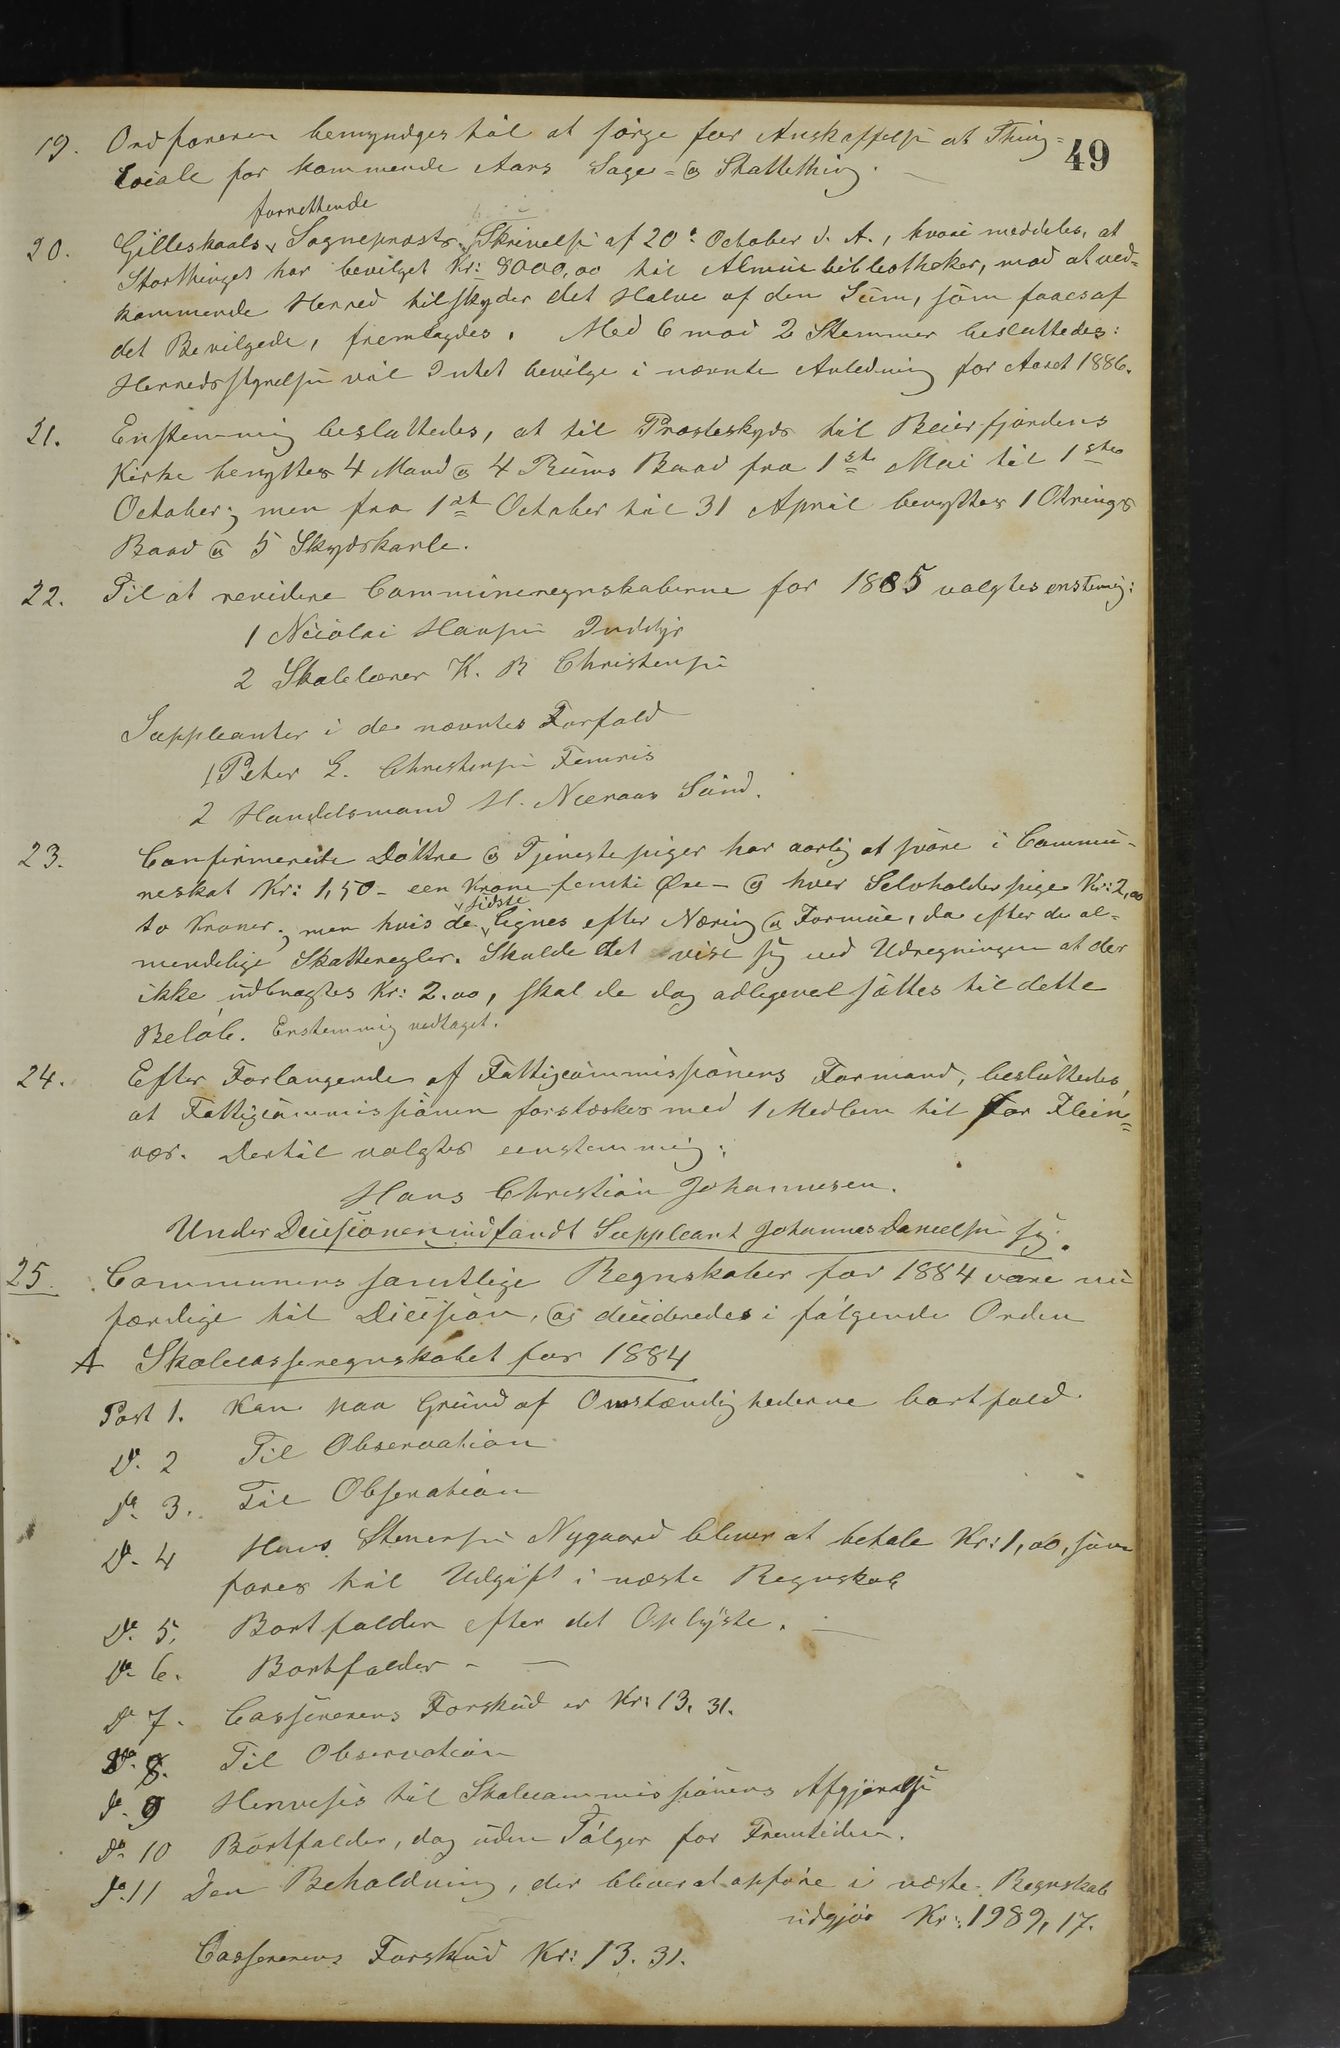 49
19. Ordføreren bemyndges til at sørge for Anskaffelse at Thing=
Locale for kommende Aars Sage= og Skattething. —
forrettende
20. Gilleskaals Sogneprests Skrivelse af 20de October d. A., hvori meddeles, at
Storthinget har bevilget Kr: 8000,00 til Almuebibliotheker, mod at ved=
kommende Herred tilskyder det Halve af den Sum, som faaes af
det Bevilgede, fremlagdes. Med 6 mod 2 Stemmer besluttedes:
Herredsstyrelsen vil Intet bevilge i nævnte Anledning for Aaret 1886.
21. Enstemmig besluttedes, at til Præsteskyds til Beierfjordens
Kirke benyttes 4 Mand og 4 Rums Baad fra 1ste Mai til 1ste
October; men fra 1ste October til 31 April benyttes 1 Otrings
Baad og 5 Skydskarle.
22. Til at revidere Communeregnskaberne for 1885 valgtes enstemig:
1 Nicolai Hansen Inddyr
2 Skolelærer K. R Christensen
Suppleanter i de nævntes Forfald
1 Peter L. Christensen Femris
2 Handelsmand H. Neeraas Sund.
23. Confirmerede Døttre og Tjenestepiger har aarlig at svare i Commu-
neskat Kr: 1,50 - een Krone femti Øre - og hver Selvholderpige Kr: 2,00
to Kroner; men hvis de
sidste
lignes efter Næring og Formue, da efter de al=
mendelige Skatteregler. Skulde det vise sig ved Udregningen at der
ikke udbragtes Kr: 2.00, skal de dog adligevel sættes til dette
Beløb. Enstemmig vedtaget.
24. Efter Forlangende af Fattigcommissionens Formand, besluttedes,
at Fattigcommissionen forstærkes med 1 Medlem til for Flein=
vær. Dertil valgtes eenstemmig:
Hans Christian Johannesen.
Under Decisionen indfandt Suppleant Johannes Danielsen sig.
25. Communens samtlige Regnskaber for 1884 vare nu
færdige til Decision, og decideredes i følgende Orden
A Skolecasseregnskabet for 1884
Post 1. Kan paa Grund af Omstændighederne bortfald
Do. 2 Til Observation
Do. 3. Til Observation
Do. 4 Hans Stenersen Nygaard bliver at betale Kr: 1,00, som
føres til Udgift i næste Regnskab
Do. 5. Bortfalder efter det Oplyste. —
Do. 6. Bortfalder - —
Do. 7. Cassererens Forskud er Kr: 13.31.
Do. 8. Til Observation
Do. 9 Henvises til Skolecommissionens Afgjørelse
Do. 10 Bortfalder, dog uden Følger for Fremtiden.
Do. 11 Den Beholdning, der bliver at opføre i næste Regnskab
udgjør Kr: 1989,17.
Cassererens Forskud Kr: 13.31.